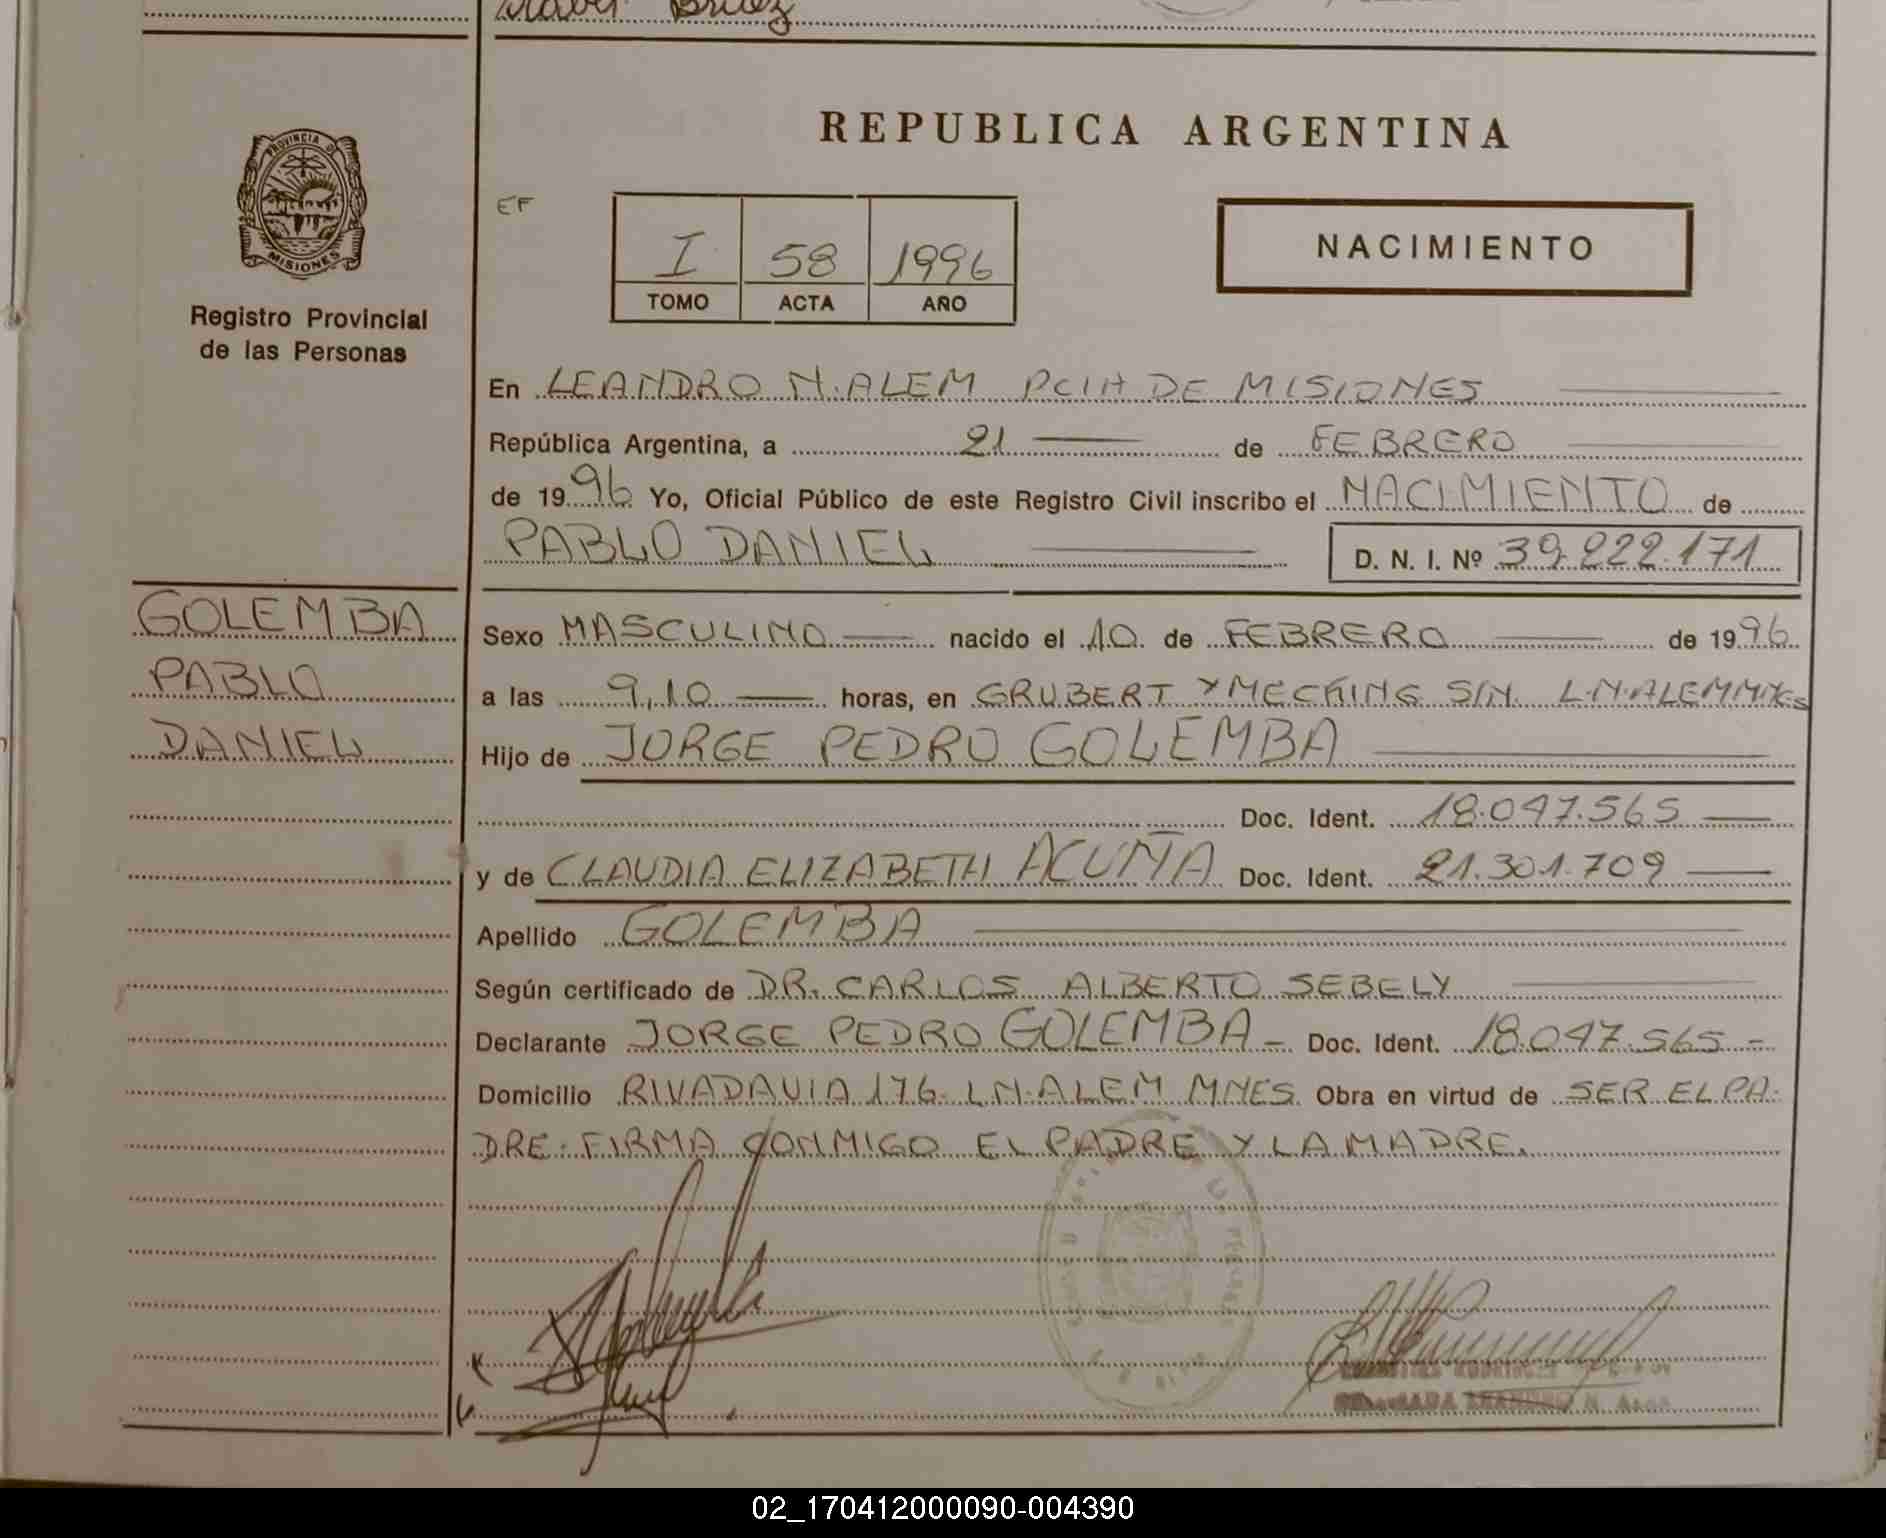 PROVINCIA D
MISIONES
Registro Provincial
de las Personas
GOLEMBA
PABLO
DANIEL
REPUBLICA ARGENTINA
EF
I 58 1996
TOMO ACTA AÑO
NACIMIENTO
En LEANDRO N. ALEM PCIA DE MISIONES
República Argentina, a 21 de FEBRERO
de 1996 Yo, Oficial Público de este Registro Civil inscribo el NACIMIENTO de
PABLO DANIEL D. N. I. Nº 39.222.171
Sexo MASCULINO nacido el 10 de FEBRERO de 1996
a las 9,10 horas, en GRUBERT Y MECKING S/N. L.N.ALEM MNES
Hijo de JORGE PEDRO GOLEMBA
Doc. Ident. 18.047.565
y de CLAUDIA ELIZABETH ACUÑA Doc. Ident. 21.301.709
Apellido GOLEMBA
Según certificado de DR. CARLOS ALBERTO SEBELY
Declarante JORGE PEDRO GOLEMBA - Doc. Ident. 18.047.565 -
Domicilio RIVADAVIA 176 L.N.ALEM MNES. Obra en virtud de SER EL PA-
DRE. FIRMA CONMIGO EL PADRE Y LA MADRE.
02_170412000090-004390